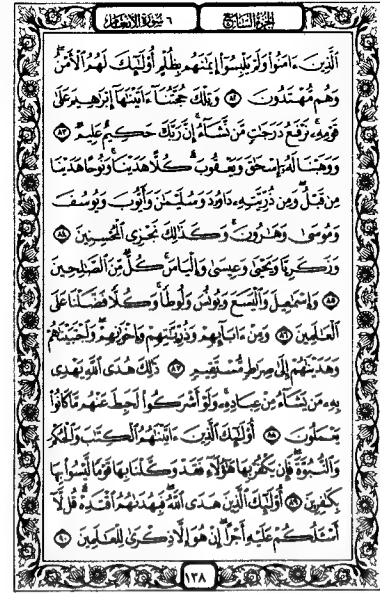 الجزء السابع ٦ سورة الأنعام
ٱلَّذِينَ ءَامَنُوا۟ وَلَمْ يَلْبِسُوٓا۟ إِيمَٰنَهُم بِظُلْمٍ أُو۟لَٰٓئِكَ لَهُمُ ٱلْأَمْنُ
وَهُم مُّهْتَدُونَ ﴿٨٢﴾ وَتِلْكَ حُجَّتُنَآ ءَاتَيْنَٰهَآ إِبْرَٰهِيمَ عَلَىٰ
قَوْمِهِۦ ۚ نَرْفَعُ دَرَجَٰتٍ مَّن نَّشَآءُ ۗ إِنَّ رَبَّكَ حَكِيمٌ عَلِيمٌ ﴿٨٣﴾
وَوَهَبْنَا لَهُۥٓ إِسْحَٰقَ وَيَعْقُوبَ ۚ كُلًّا هَدَيْنَا ۚ وَنُوحًا هَدَيْنَا
مِن قَبْلُ ۖ وَمِن ذُرِّيَّتِهِۦ دَاوُۥدَ وَسُلَيْمَٰنَ وَأَيُّوبَ وَيُوسُفَ
وَمُوسَىٰ وَهَٰرُونَ ۚ وَكَذَٰلِكَ نَجْزِى ٱلْمُحْسِنِينَ ﴿٨٤﴾
وَزَكَرِيَّا وَيَحْيَىٰ وَعِيسَىٰ وَإِلْيَاسَ ۖ كُلٌّ مِّنَ ٱلصَّٰلِحِينَ
﴿٨٥﴾ وَإِسْمَٰعِيلَ وَٱلْيَسَعَ وَيُونُسَ وَلُوطًا ۚ وَكُلًّا فَضَّلْنَا عَلَى
ٱلْعَٰلَمِينَ ﴿٨٦﴾ وَمِنْ ءَابَآئِهِمْ وَذُرِّيَّٰتِهِمْ وَإِخْوَٰنِهِمْ ۖ وَٱجْتَبَيْنَٰهُمْ
وَهَدَيْنَٰهُمْ إِلَىٰ صِرَٰطٍ مُّسْتَقِيمٍ ﴿٨٧﴾ ذَٰلِكَ هُدَى ٱللَّهِ يَهْدِى
بِهِۦ مَن يَشَآءُ مِنْ عِبَادِهِۦ ۚ وَلَوْ أَشْرَكُوا۟ لَحَبِطَ عَنْهُم مَّا كَانُوا۟
يَعْمَلُونَ ﴿٨٨﴾ أُو۟لَٰٓئِكَ ٱلَّذِينَ ءَاتَيْنَٰهُمُ ٱلْكِتَٰبَ وَٱلْحُكْمَ
وَٱلنُّبُوَّةَ ۚ فَإِن يَكْفُرْ بِهَا هَٰٓؤُلَآءِ فَقَدْ وَكَّلْنَا بِهَا قَوْمًا لَّيْسُوا۟ بِهَا
بِكَٰفِرِينَ ﴿٨٩﴾ أُو۟لَٰٓئِكَ ٱلَّذِينَ هَدَى ٱللَّهُ ۖ فَبِهُدَىٰهُمُ ٱقْتَدِهْ ۗ قُل لَّآ
أَسْـَٔلُكُمْ عَلَيْهِ أَجْرًا ۖ إِنْ هُوَ إِلَّا ذِكْرَىٰ لِلْعَٰلَمِينَ ﴿٩٠﴾
١٣٨